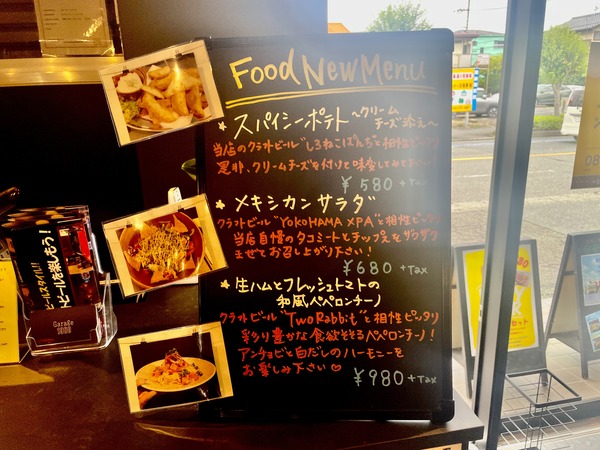 Food New Menu
★ スパイシーポテト 〜クリーム
チーズ添え〜
当店のクラフトビール"しろねこぱんち"と相性ピッタリ
是非、クリームチーズを付けて味変してみて
¥580 +tax
★ メキシカンサラダ
クラフトビール"YOKOHAMA XPA"と相性ピッタリ
当店自慢のタコミートとチップスをザクザク
まぜてお召し上がり下さい！
¥680 +tax
★ 生ハムとフレッシュトマトの
和風ペペロンチーノ
クラフトビール"Two Rabbit"と相性ピッタリ
彩り豊かな食欲そそるペペロンチーノ！
アンチョビと白だしのハーモニーを
お楽しみ下さい♡
¥980 +tax
Garage